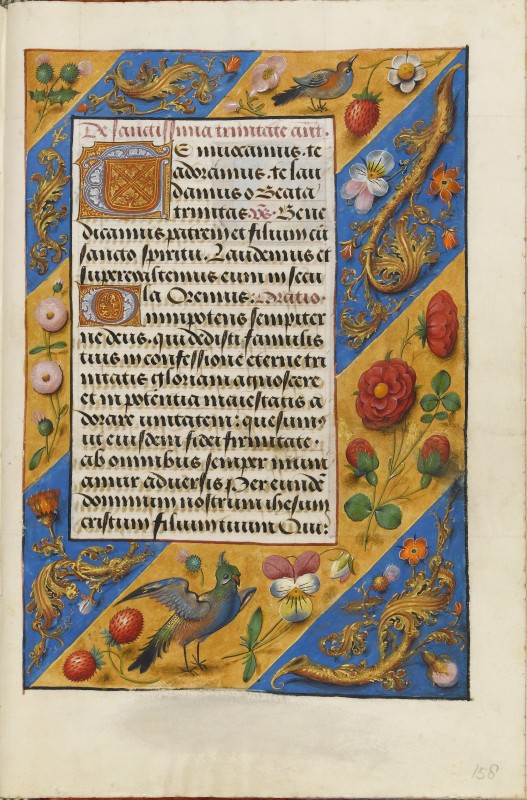 De sanctissima trinitate ant.
Te inuocamus . te
adoramus . te lau
damus o Beata
trinitas . vs̄ . Bene
dicamus patrem et filium cū
sancto spiritu . Laudemus et
superexaltemus eum in secu
la Oremus . Oratio .
Omnipotens sempiter
ne deus . qui dedisti famulis
tuis in confessione eterne tri
nitatis gloriam agnoscere
et in potentia maiestatis a
dorare unitatem : quesumꝰ
ut eiusdem fidei firmitate .
ab omnibus semper muni
amur aduersis Per eundē
dominum nostrum ihesum
cristum filium tuum Qui :
158